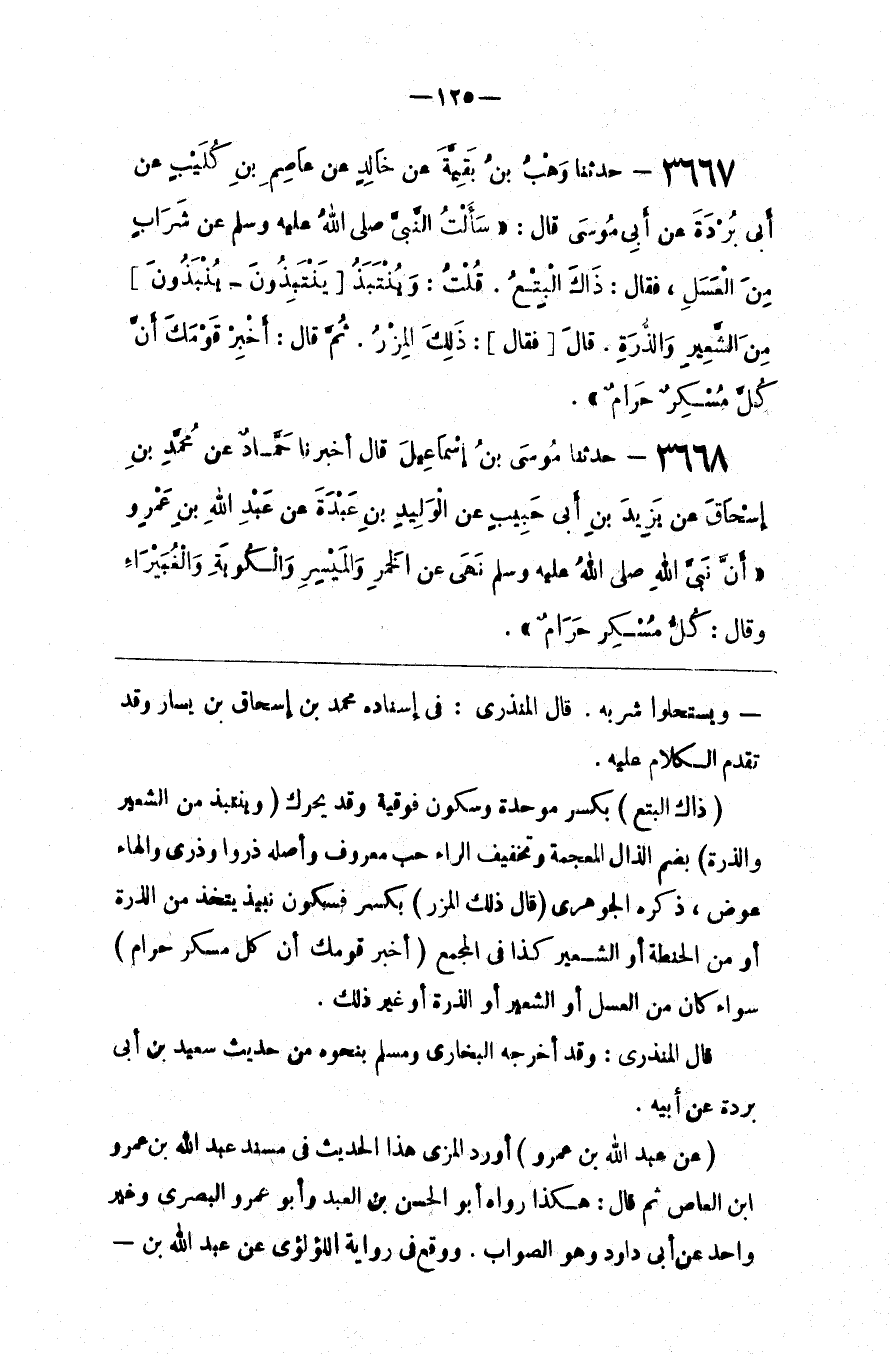 —١٢٥—
٣٦٦٧ — حدثنا وَهْبُ بنُ بَقِيَّةَ عن خَالِدٍ عن عَاصِمِ بنِ كُلَيْبٍ عن
أَبى بُرْدَةَ عن أَبِى مُوسَى قال : « سَأَلْتُ النَّبِىَّ صلى اللهُ عليه وسلم عن شَرَابٍ
مِنَ الْعَسَلِ ، فقال : ذَاكَ الْبِتْعُ . قُلْتُ : وَيُنْتَبَذُ [ يَنْتَبِذُونَ – يُنْبَذُونَ ]
مِنَ الشَّعِيرِ وَالذُّرَةِ . قالَ [ فقال ] : ذَلِكَ المِزْرُ . ثُمَّ قال : أَخْبِرْ قَوْمَكَ أَنَّ
كُلَّ مُسْكِرٌ حَرَامٌ » .
٣٦٦٨ — حدثنا مُوسَى بنُ إسْمَاعِيلَ قال أخبرنا حَمَّادٌ عن مُحمَّدِ بنِ
إسْحَاقَ عن يَزِيدَ بنِ أَبى حَبِيبٍ عن الْوَلِيدِ بنِ عَبْدَةَ عن عَبْدِ اللهِ بنِ عَمْرٍو
« أَنَّ نَبِىَّ اللهِ صلى اللهُ عليه وسلم نَهَى عن الخمرِ وَالمَيْسِرِ وَالْكُوبَةِ وَالْغُبَيْرَاءِ
وقال : كُلُّ مُسْكِرٍ حَرَامٌ » .
— ويستحلوا شربه . قال المنذرى : فى إسناده محمد بن إسحاق بن يسار وقد
تقدم الكلام عليه .
( ذاك البتع ) بكسر موحدة وسكون فوقية وقد يحرك ( وينتبذ من الشعير
والذرة) بضم الذال المعجمة وتخفيف الراء حب معروف وأصله ذروا وذرى والهاء
عوض ، ذكره الجوهرى (قال ذلك المزر ) بكسر فسكون نبيذ يتخذ من الذرة
أو من الحنطة أو الشعير كذا فى المجمع ( أخبر قومك أن كل مسكر حرام )
سواء كان من العسل أو الشعير أو الذرة أو غير ذلك .
قال المنذرى : وقد أخرجه البخارى ومسلم بنحوه من حديث سعيد بن أبى
بردة عن أبيه .
( عن عبد الله بن عمرو ) أورد المزى هذا الحديث فى مسند عبد الله بن عمرو
ابن العاص ثم قال : هكذا رواه أبو الحسن بن العبد وأبو عمرو البصرى وغير
واحد عن أبى داود وهو الصواب . ووقع فى رواية اللؤلؤى عن عبد الله بن —